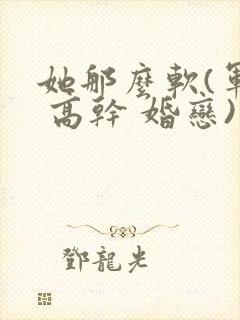 她那麼軟(軍
高幹 婚戀)
鄧龍光